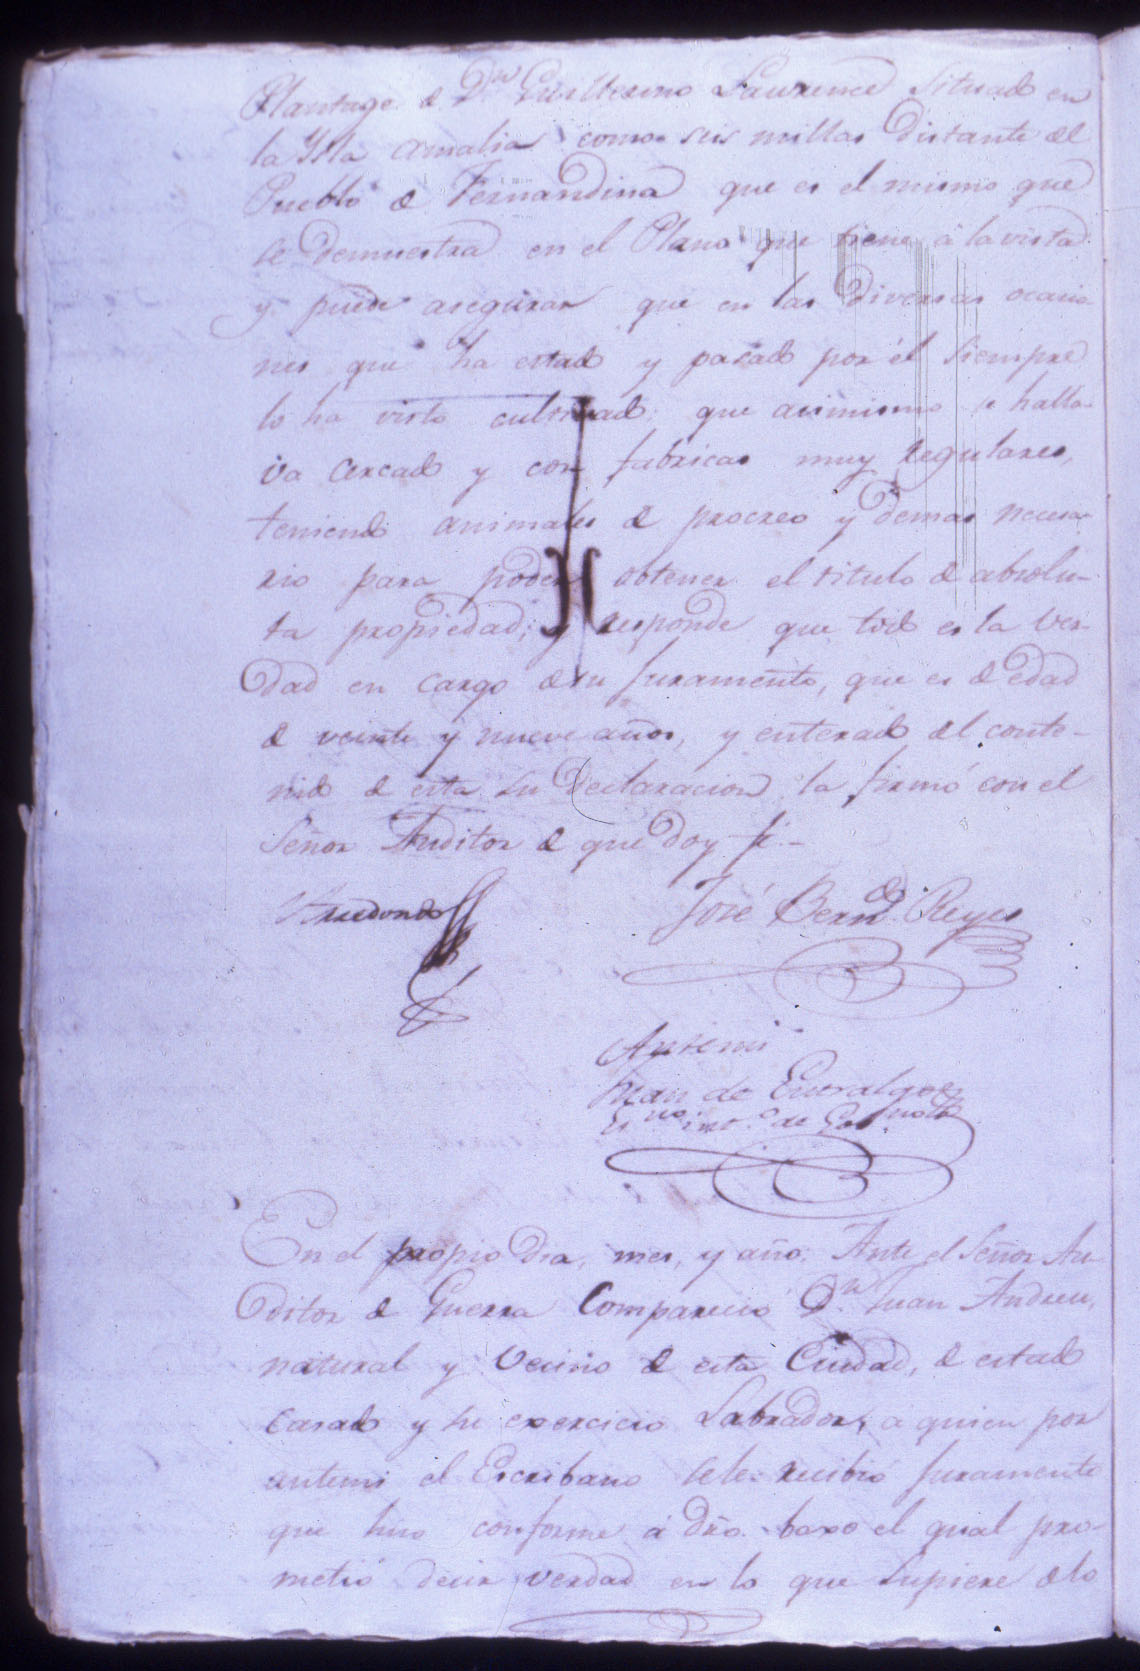 Plantage de Dn. Guillermo Laurence situado en
la Ysla Amalia como seis millas distante del
Pueblo de Fernandina que es el mismo que
se demuestra en el Plano que tiene á la vista
y puede asegurar que en las diversas ocacio-
nes que ha estado y pasado por él siempre
lo ha visto cultivado; que asimismo se halla-
va cercado y con fabricas muy regulares,
teniendo animales de procreo y demas necesa-
rio para poder obtener el titulo de absolu-
ta propiedad; y responde que todo es la ver-
dad en cargo de su juramento, que es de edad
de veinte y nueve años, y enterado del conte-
nido de esta su declaracion la firmó con el
Señor Auditor de que doy fé.-
Arredondo
José Berndo. Reyes
Antemi
Juan de Entralgo
Esno. into. de Gov.
En el propio dia, mes, y año: Ante el Señor Au-
ditor de Guerra Comparecio Dn. Juan Andreu,
natural y vecino de esta Ciudad, de estado
casado y su exercicio Labrador, a quien por
antemi el Escribano sele recibió juramento
que hizo conforme á dro. baxo el qual pro-
metió decir verdad en lo que supiere de lo